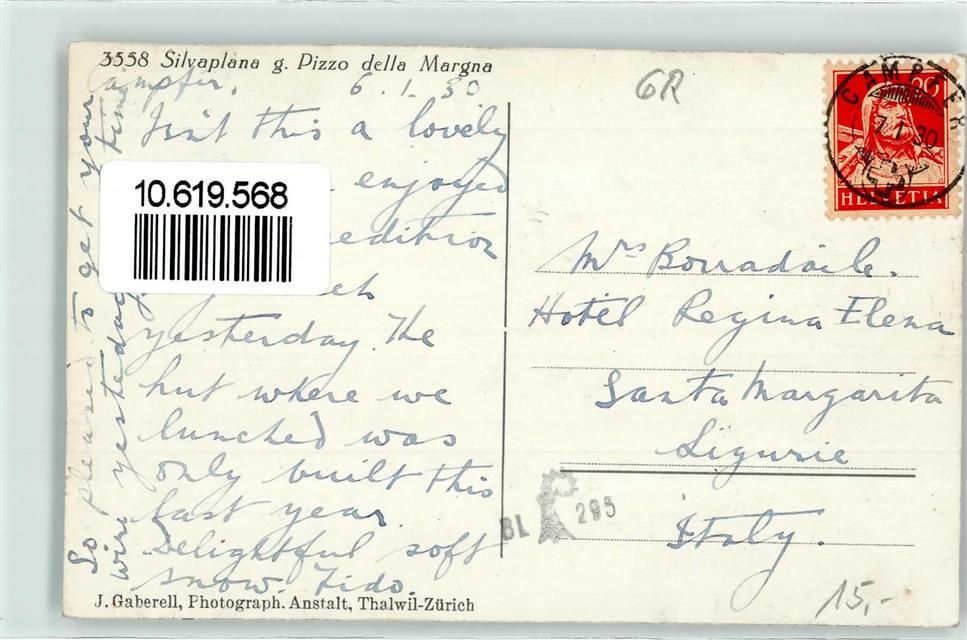 3558 Silvaplana g. Pizzo della Margna
Campfér, 6.1.30
Isn't this a lovely
enjoyed
yesterday. The
hut where we
lunched was
only built this
last year.
Delightful soft
snow. Fido.
So pleased to get your
wire yesterday
time
10.619.568
6R
CAMPFER
7.1.30
20
HELVETIA
Mrs Borradaile.
Hotel Regina Elena
Santa Margarita
Ligurie
Italy.
BL 295
15,-
J. Gaberell, Photograph. Anstalt, Thalwil-Zürich